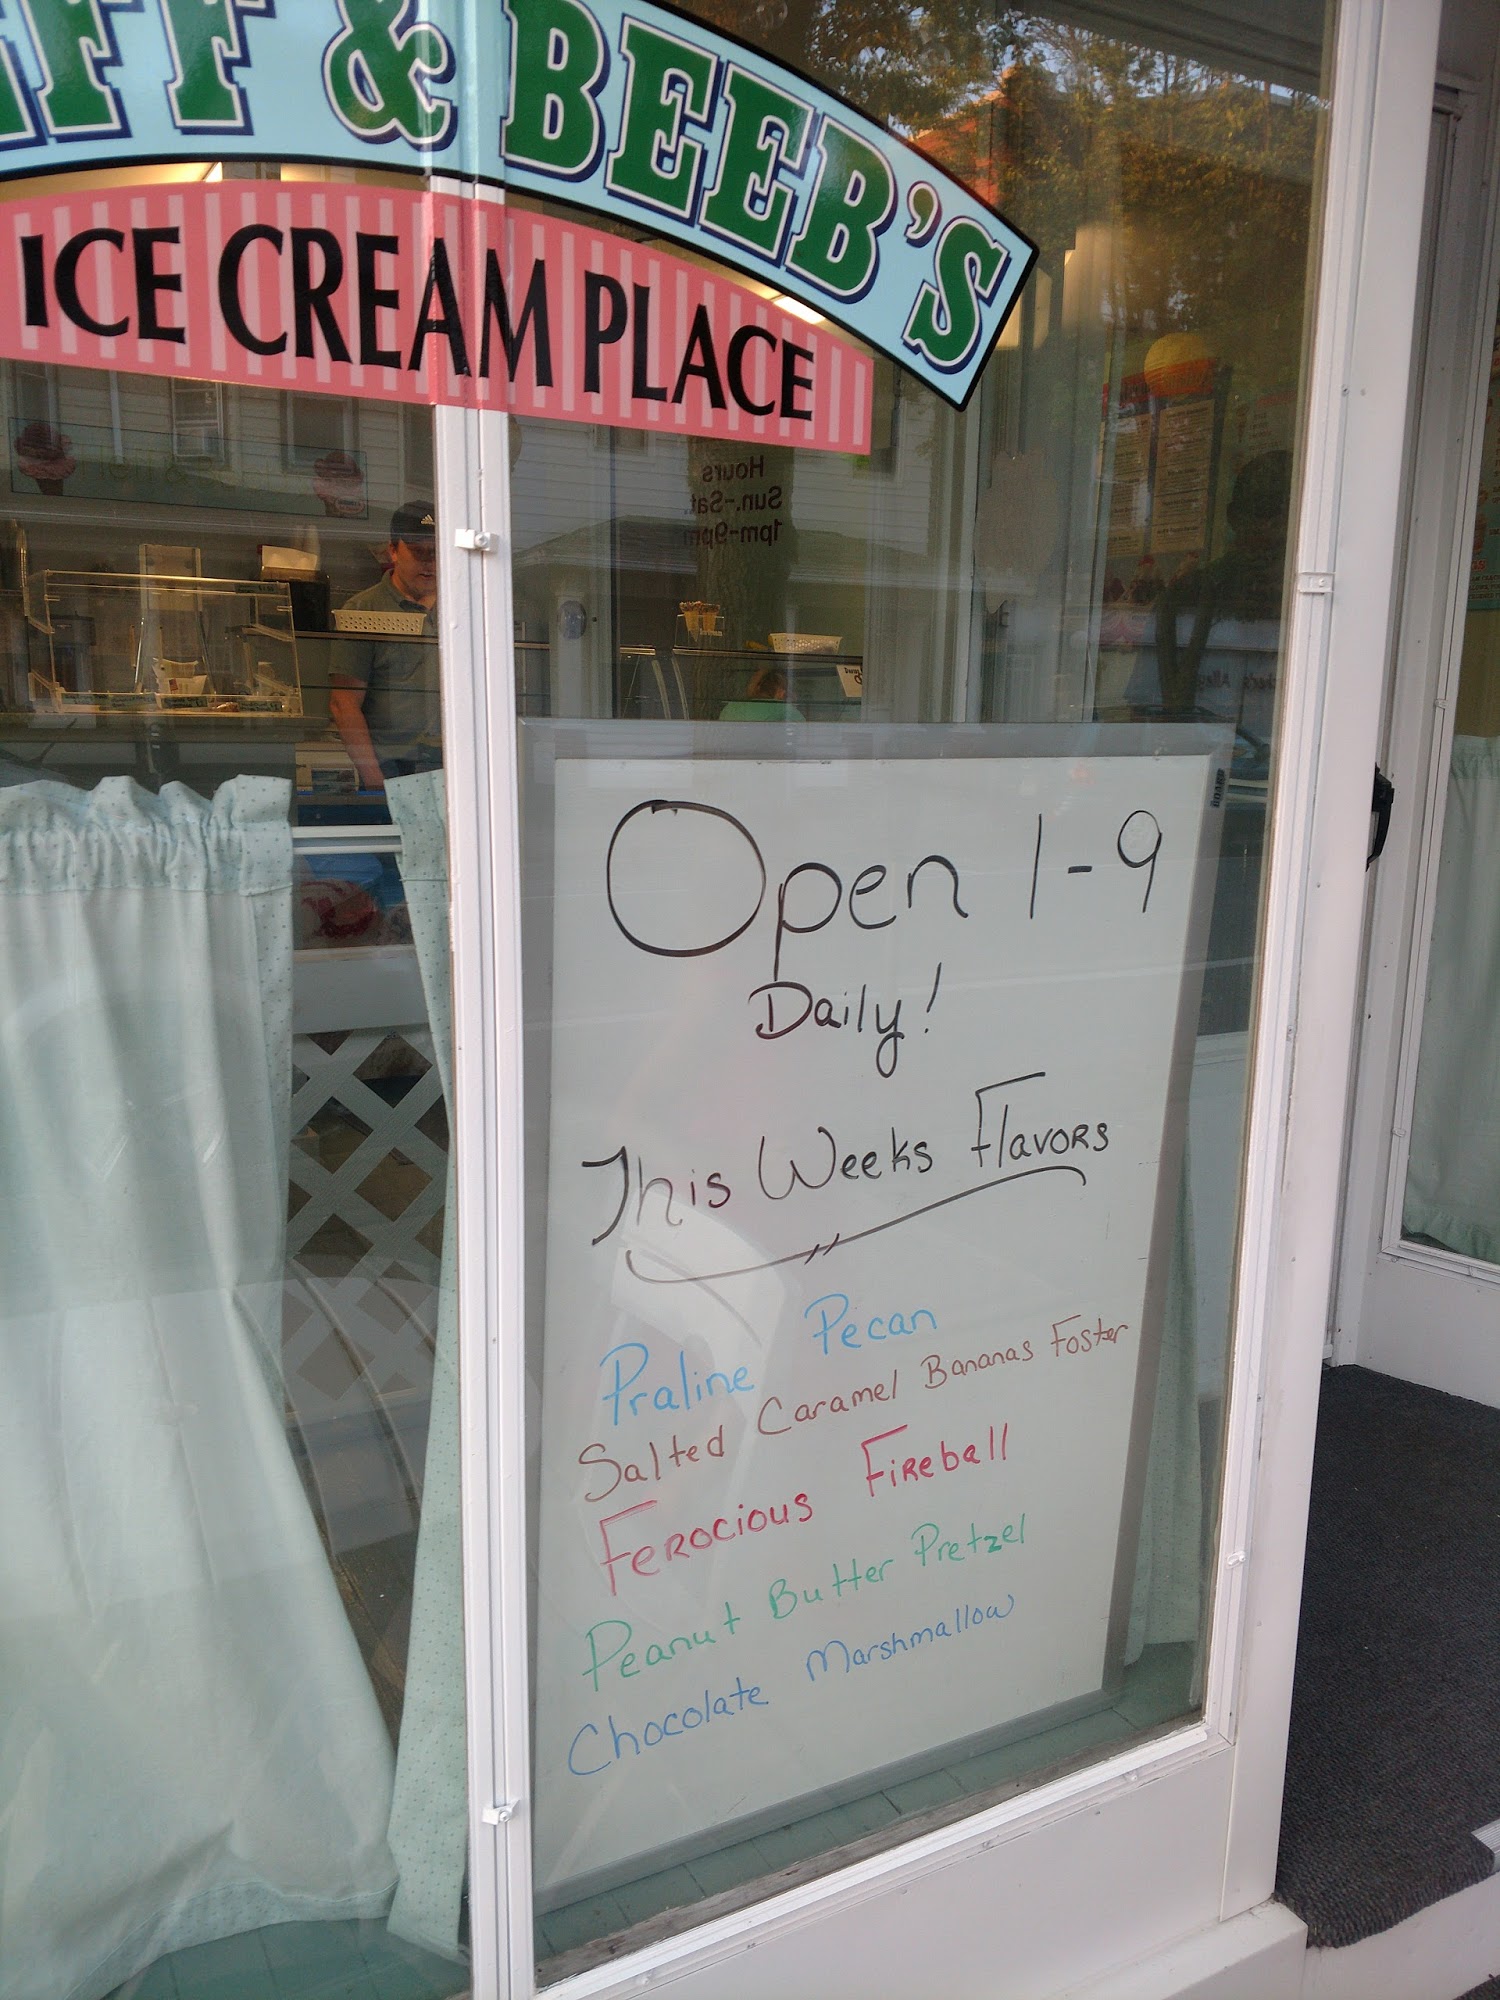 FF & BEEB'S
ICE CREAM PLACE
Hours
Sun.-Sat.
1pm-9pm
Open 1-9
Daily!
This Weeks Flavors
Praline Pecan
Salted Caramel Bananas Foster
Ferocious Fireball
Peanut Butter Pretzel
Chocolate Marshmallow